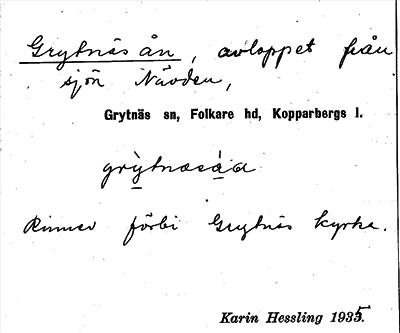 Grytnäs ån, avloppet från
sjön Nävden,
Grytnäs sn, Folkare hd, Kopparbergs l.
grỳtnæsáa
Rinner förbi Grytnäs kyrka.
Karin Hessling 1935.